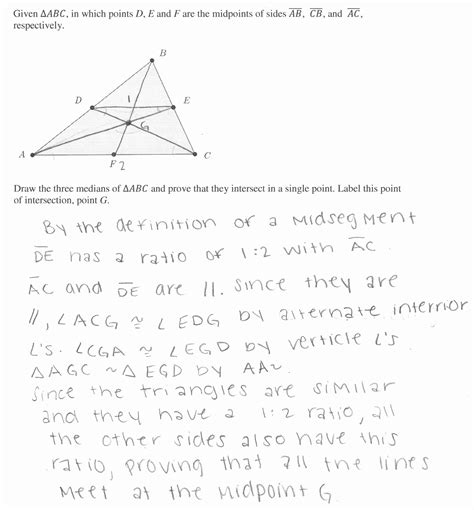 Given ΔABC, in which points D, E and F are the midpoints of sides AB, CB, and AC,
respectively.
B
D
1
E
G
A
F 2
C
Draw the three medians of ΔABC and prove that they intersect in a single point. Label this point
of intersection, point G.
By the definition of a midsegment
DE has a ratio of 1:2 with AC.
AC and DE are //. Since they are
//, ∠ACG ≅ ∠EDG by alternate interrior
∠'s. ∠CGA ≅ ∠EGD by verticle ∠'s.
ΔAGC ~ Δ EGD by AA~.
Since the triangles are similar
and they have a 1:2 ratio, all
the other sides also have this
ratio, proving that all the lines
meet at the midpoint G.